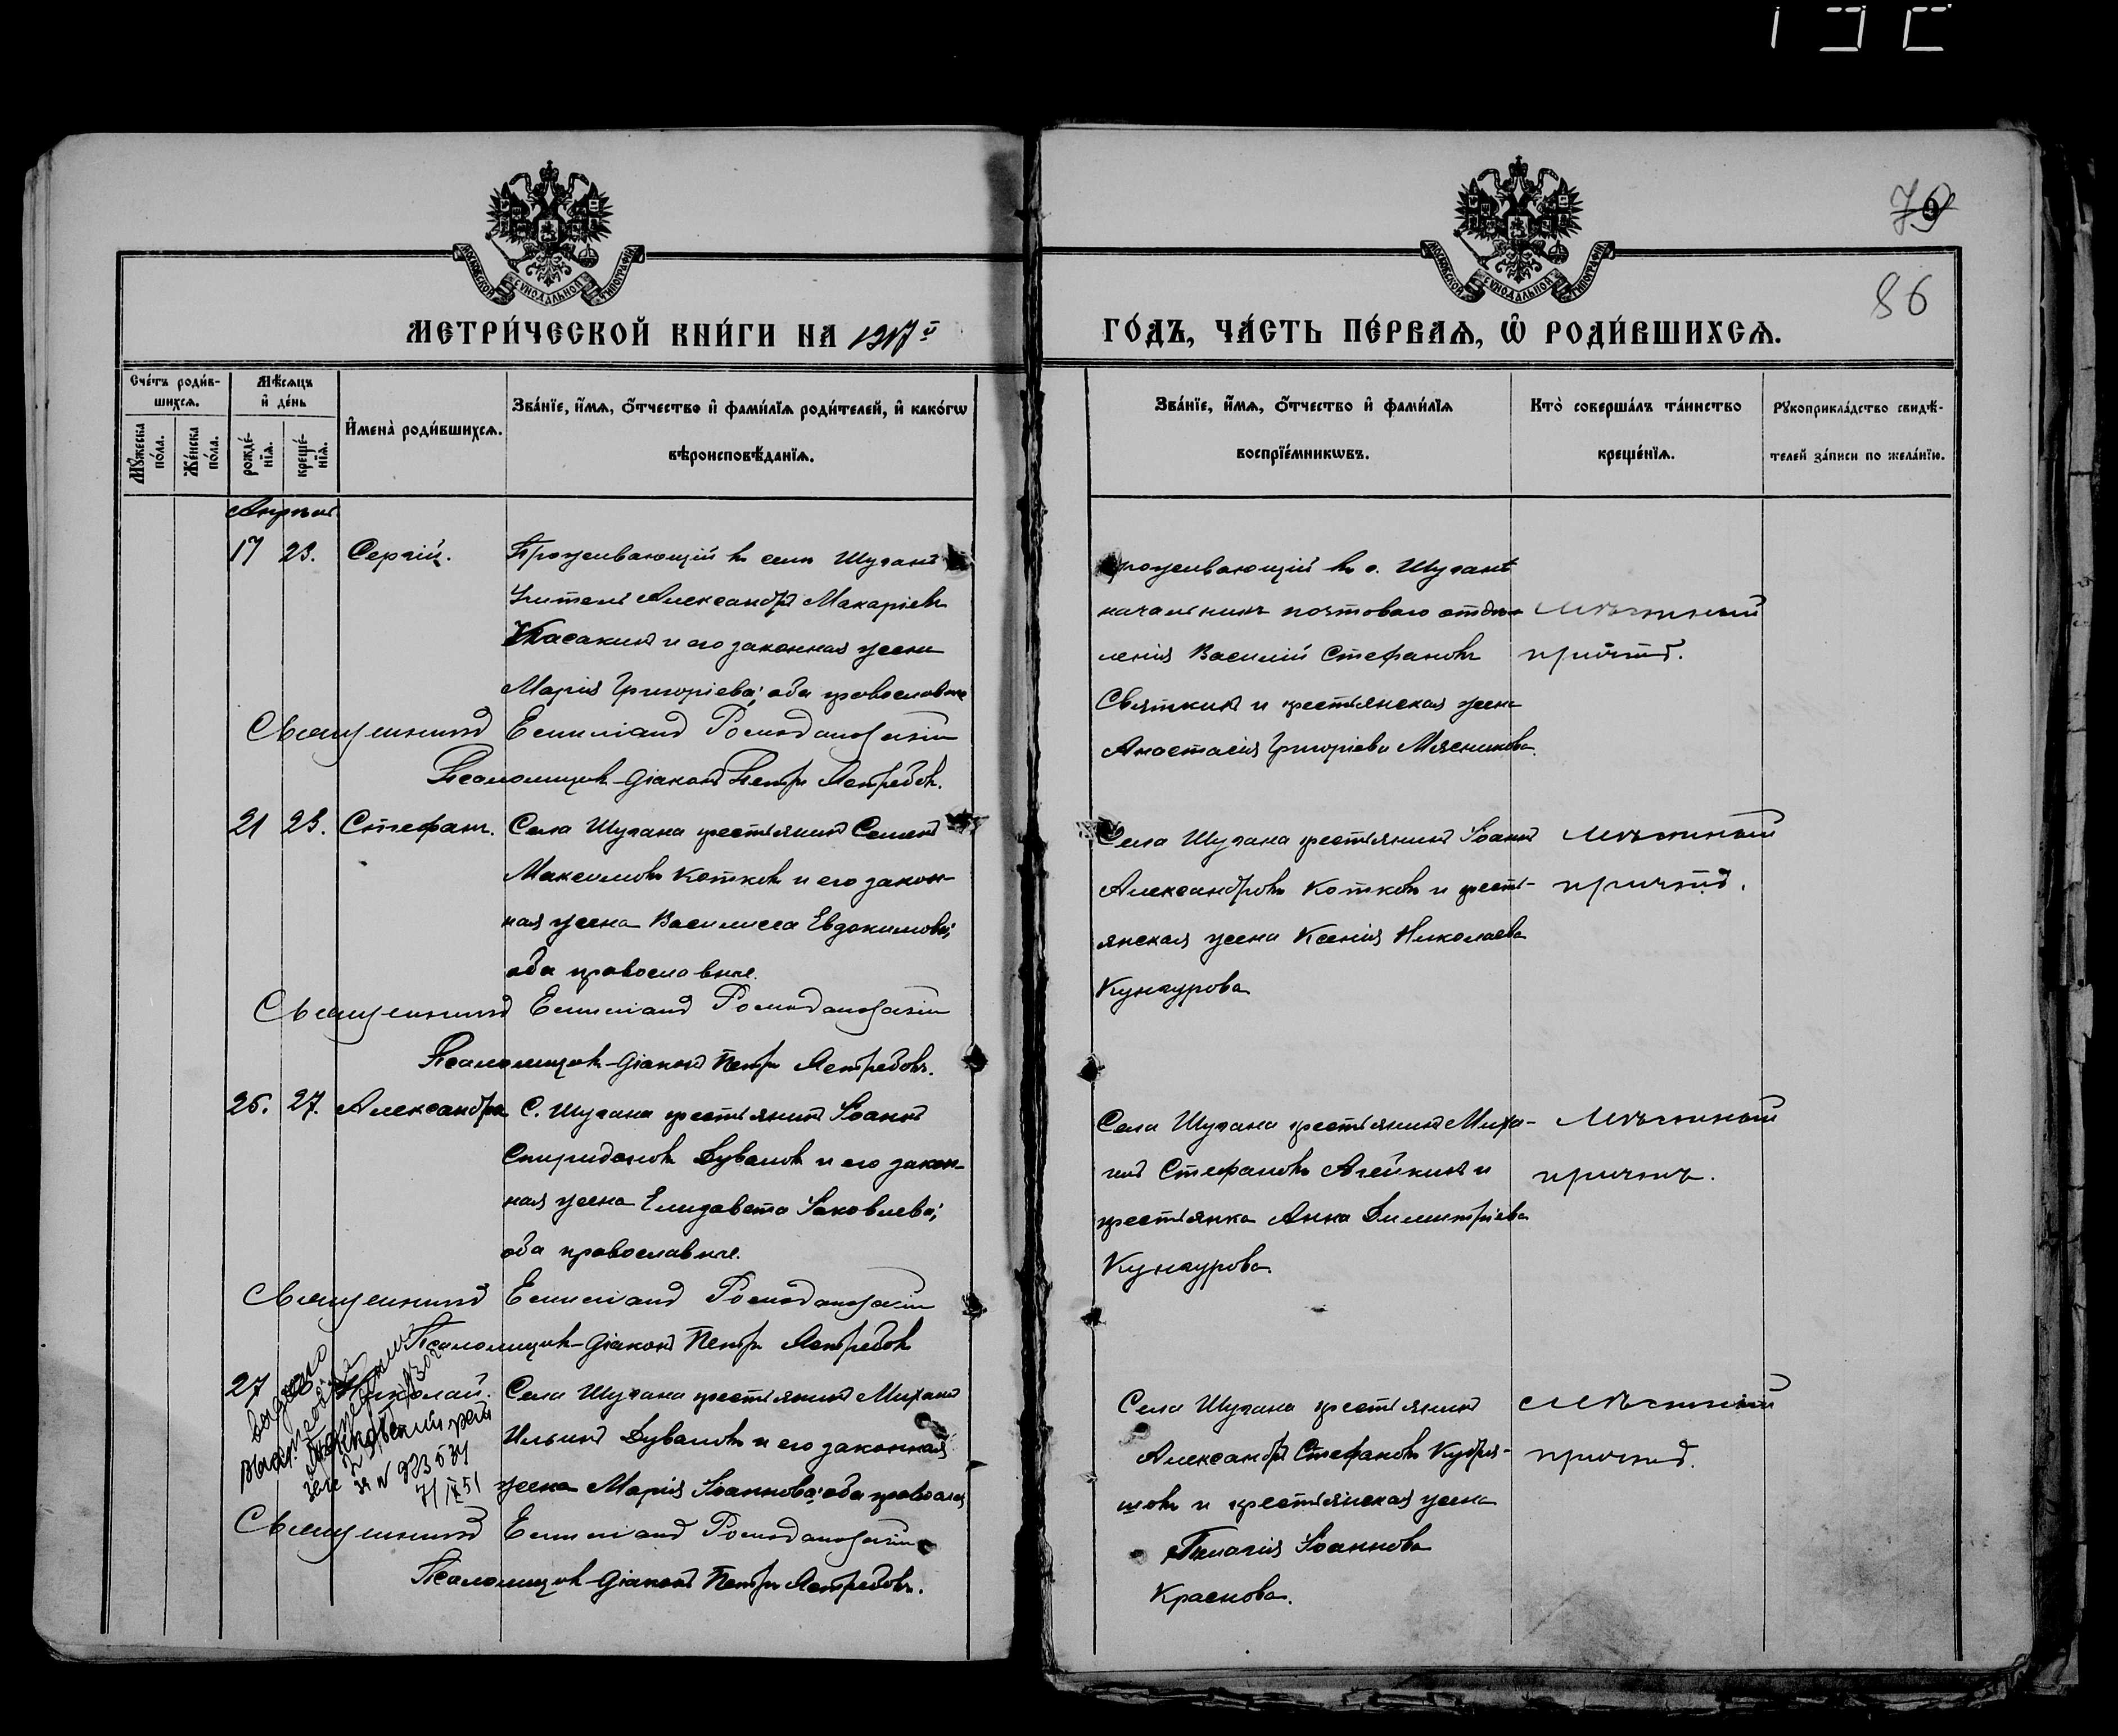 79
86
МОСКОВСКОЙ СѴНОДАЛЬНОЙ ТИПОГРАФІИ
МОСКОВСКОЙ СѴНОДАЛЬНОЙ ТИПОГРАФІИ
МЕТРИ́ЧЕСКОЙ КНИ́ГИ НА 1917 й
ГО́ДЪ, ЧА́СТЬ ПЕ́РВАѦ, Ѡ҆ РОДИ́ВШИХСѦ.
Сче́тъ роди́в-
шихсѧ.
Мꙋ́жеска по́ла.
Же́нска по́ла.
Мѣ́сѧцъ
и҆ де́нь
рожде́-
нїѧ.
креще́-
нїѧ.
И҆мена̀ роди́вшихсѧ.
Зва́нїе, и҆́мѧ, ѻ҆́тчество и҆ фами́лїѧ роди́телей, и҆ како́гѡ
вѣроисповѣ́данїѧ.
Зва́нїе, и҆́мѧ, ѻ҆́тчество и҆ фами́лїѧ
воспрїе́мникѡвъ.
Кто̀ соверша́лъ та́инство
креще́нїѧ.
Рꙋкоприкла́дство свидѣ́-
телей за́писи по жела́нїю.
Апрѣль
17 23. Сергій. Проживающій въ селѣ Шуганѣ
учитель Александръ Макаріевъ
Касакинъ и его законная жена
Марія Григоріева; оба православные
Священникъ Емиліанъ Ромодановскій
Псаломщикъ-діаконъ Петръ Ястребовъ.
Проживающій въ с. Шуганѣ
начальникъ почтоваго отдѣ-
ленія Василій Стефановъ
Святкинъ и крестьянская жена
Анастасія Григоріева Мясникова.
мѣстный
причтъ.
21 23. Стефанъ. Села Шугана крестьянинъ Семенъ
Максимовъ Котковъ и его закон-
ная жена Василисса Евдокимова;
оба православные.
Священникъ Емиліанъ Ромодановскій
Псаломщикъ-діаконъ Петръ Ястребовъ.
Села Шугана крестьянинъ Іоаннъ
Александровъ Котковъ и кресть-
янская жена Ксенія Николаева
Кунгурова
мѣстный
причтъ.
25. 27. Александра С. Шугана крестьянинъ Іоаннъ
Спиридоновъ Дуваловъ и его закон-
ная жена Елизавета Іаковлева;
оба православные.
Священникъ Емиліанъ Ромодановскій
Псаломщикъ-діаконъ Петръ Ястребовъ
Села Шугана крестьянинъ Миха-
илъ Стефановъ Агейкинъ и
крестьянка Анна Димитріева
Кунгурова.
мѣстный
причтъ.
27 Николай. Села Шугана крестьянинъ Михаилъ
Ильинъ Дуваловъ и его законная
жена Марія Іоаннова; оба православ
Священникъ Емиліанъ Ромодановскій
Псаломщикъ-діаконъ Петръ Ястребовъ.
выдано
за № 923534
7/IX 51
Села Шугана крестьянинъ
Александръ Стефановъ Кудря-
шовъ и крестьянская жена
Пелагія Іоаннова
Краснова.
мѣстный
причтъ.